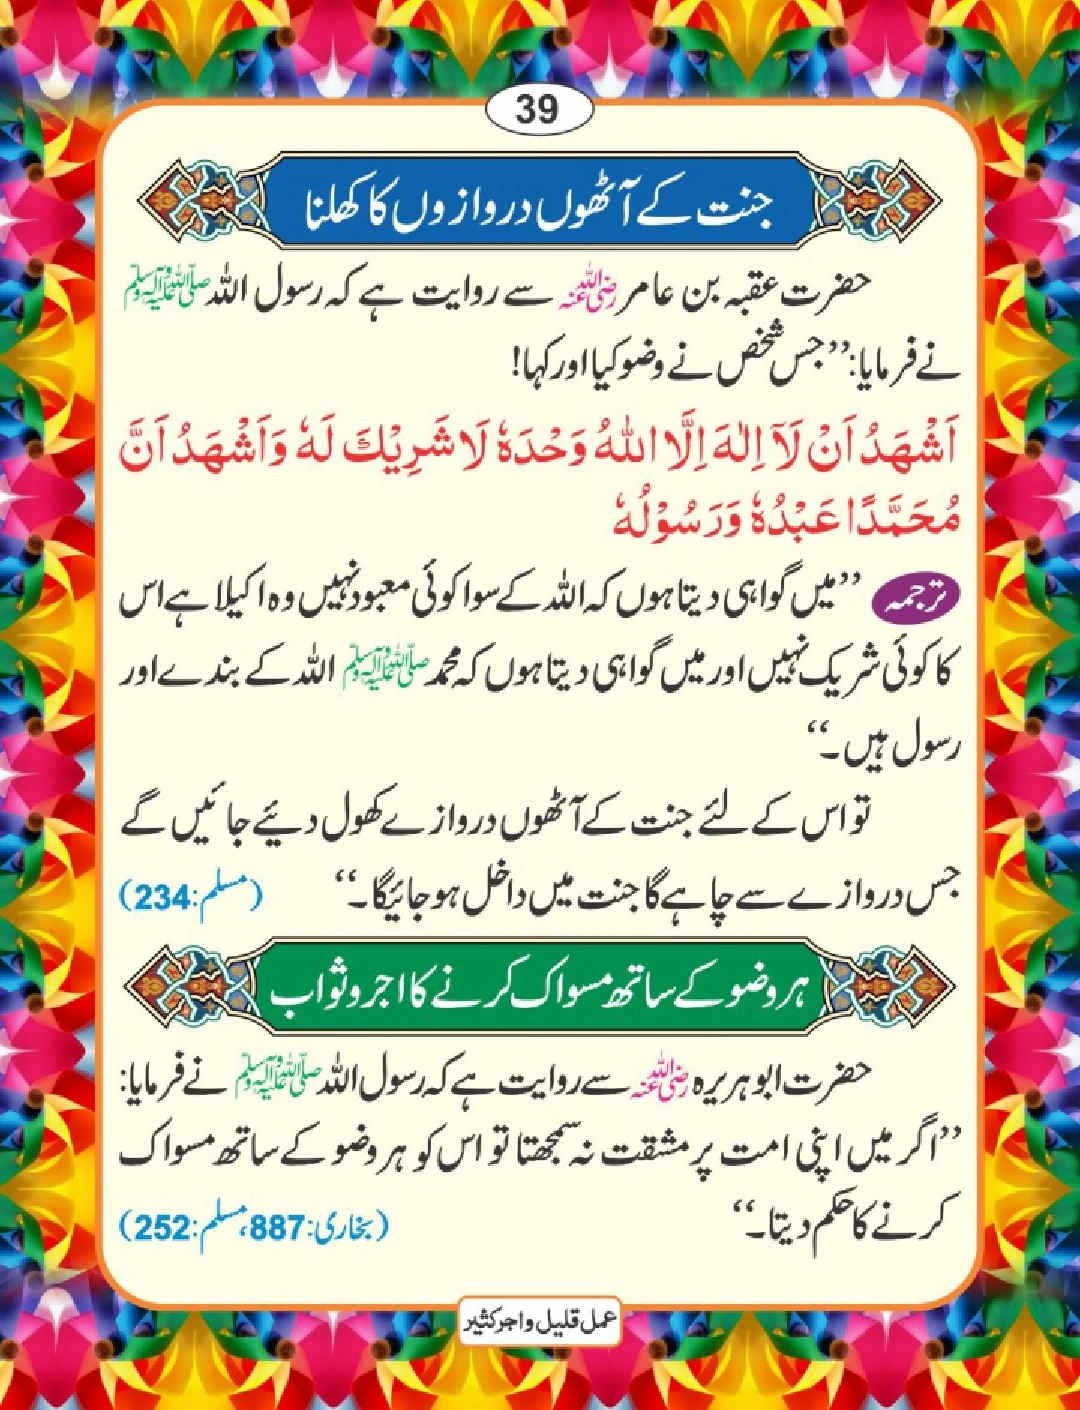 39
جنت کے آٹھوں دروازوں کا کھلنا
حضرت عقبہ بن عامر رضی اللہ عنہ سے روایت ہے کہ رسول اللہ صلی اللہ علیہ وآلہ وسلم
نے فرمایا: ’’جس شخص نے وضو کیا اور کہا!
اَشْهَدُ اَنْ لَآ اِلٰهَ اِلَّا اللهُ وَحْدَهٗ لَا شَرِيْكَ لَهٗ وَاَشْهَدُ اَنَّ
مُحَمَّدًا عَبْدُهٗ وَرَسُوْلُهٗ
ترجمہ ’’میں گواہی دیتا ہوں کہ اللہ کے سوا کوئی معبود نہیں وہ اکیلا ہے اس
کا کوئی شریک نہیں اور میں گواہی دیتا ہوں کہ محمد صلی اللہ علیہ وآلہ وسلم اللہ کے بندے اور
رسول ہیں۔‘‘
تو اس کے لئے جنت کے آٹھوں دروازے کھول دیئے جائیں گے
جس دروازے سے چاہے گا جنت میں داخل ہو جائیگا۔‘‘ (مسلم:234)
ہر وضو کے ساتھ مسواک کرنے کا اجر و ثواب
حضرت ابو ہریرہ رضی اللہ عنہ سے روایت ہے کہ رسول اللہ صلی اللہ علیہ وآلہ وسلم نے فرمایا:
’’اگر میں اپنی امت پر مشقت نہ سمجھتا تو اس کو ہر وضو کے ساتھ مسواک
کرنے کا حکم دیتا۔‘‘ (بخاری:887، مسلم:252)
عمل قلیل و اجر کثیر